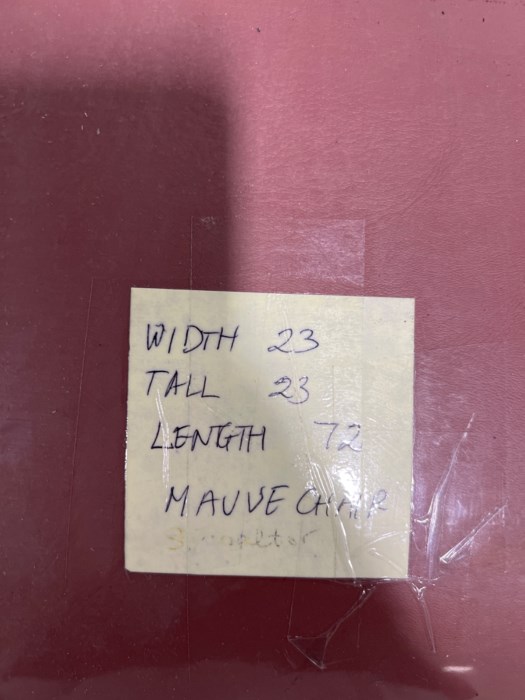 WIDTH 23
TALL 23
LENGTH 72
MAUVE CHAIR